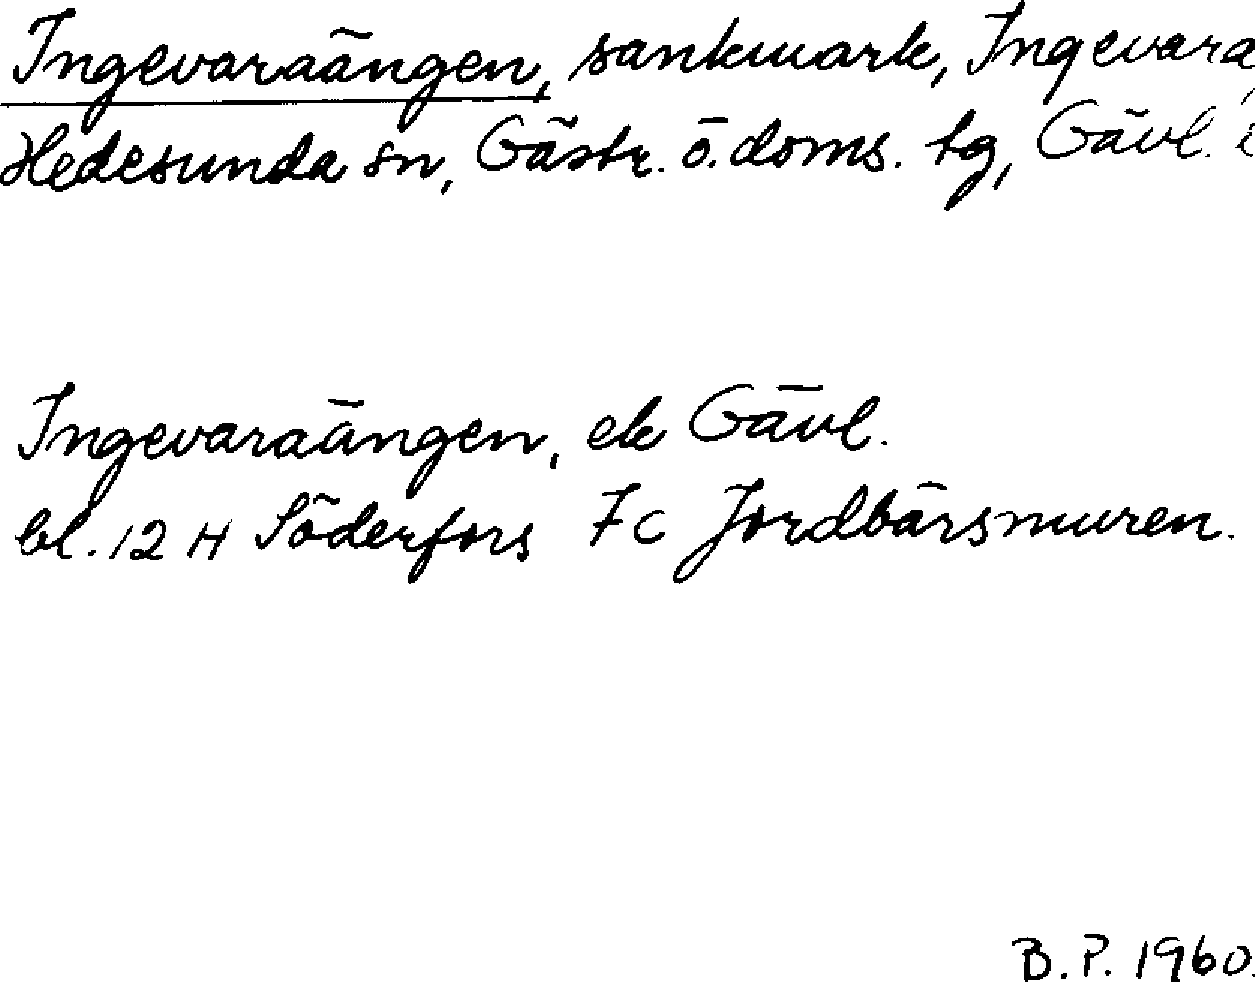 Ingevaraängen, sankmark, Ingevara
Hedesunda sn, Gästr. ö. doms. tg, Gävl.
Ingevaraängen, ek Gävl.
bl. 12 H Söderfors 7c Jordbärsmuren.
B. P. 1960.